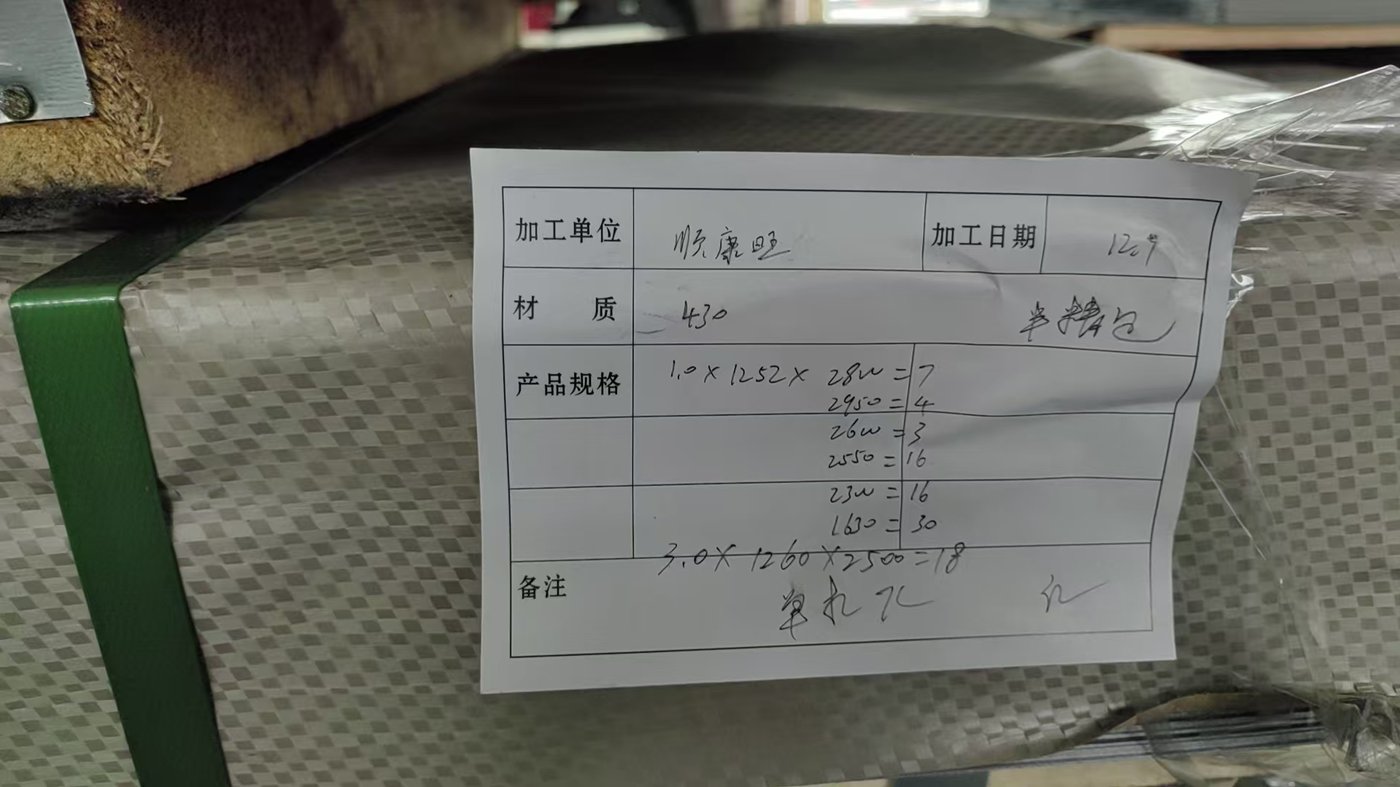 加工单位 顺康旺 加工日期 12.9
材 质 430 单精包
产品规格 1.0×1252×2800=7
2950=4
2600=3
2550=16
2300=16
1630=30
3.0×1260×2500=18
备注 单扎